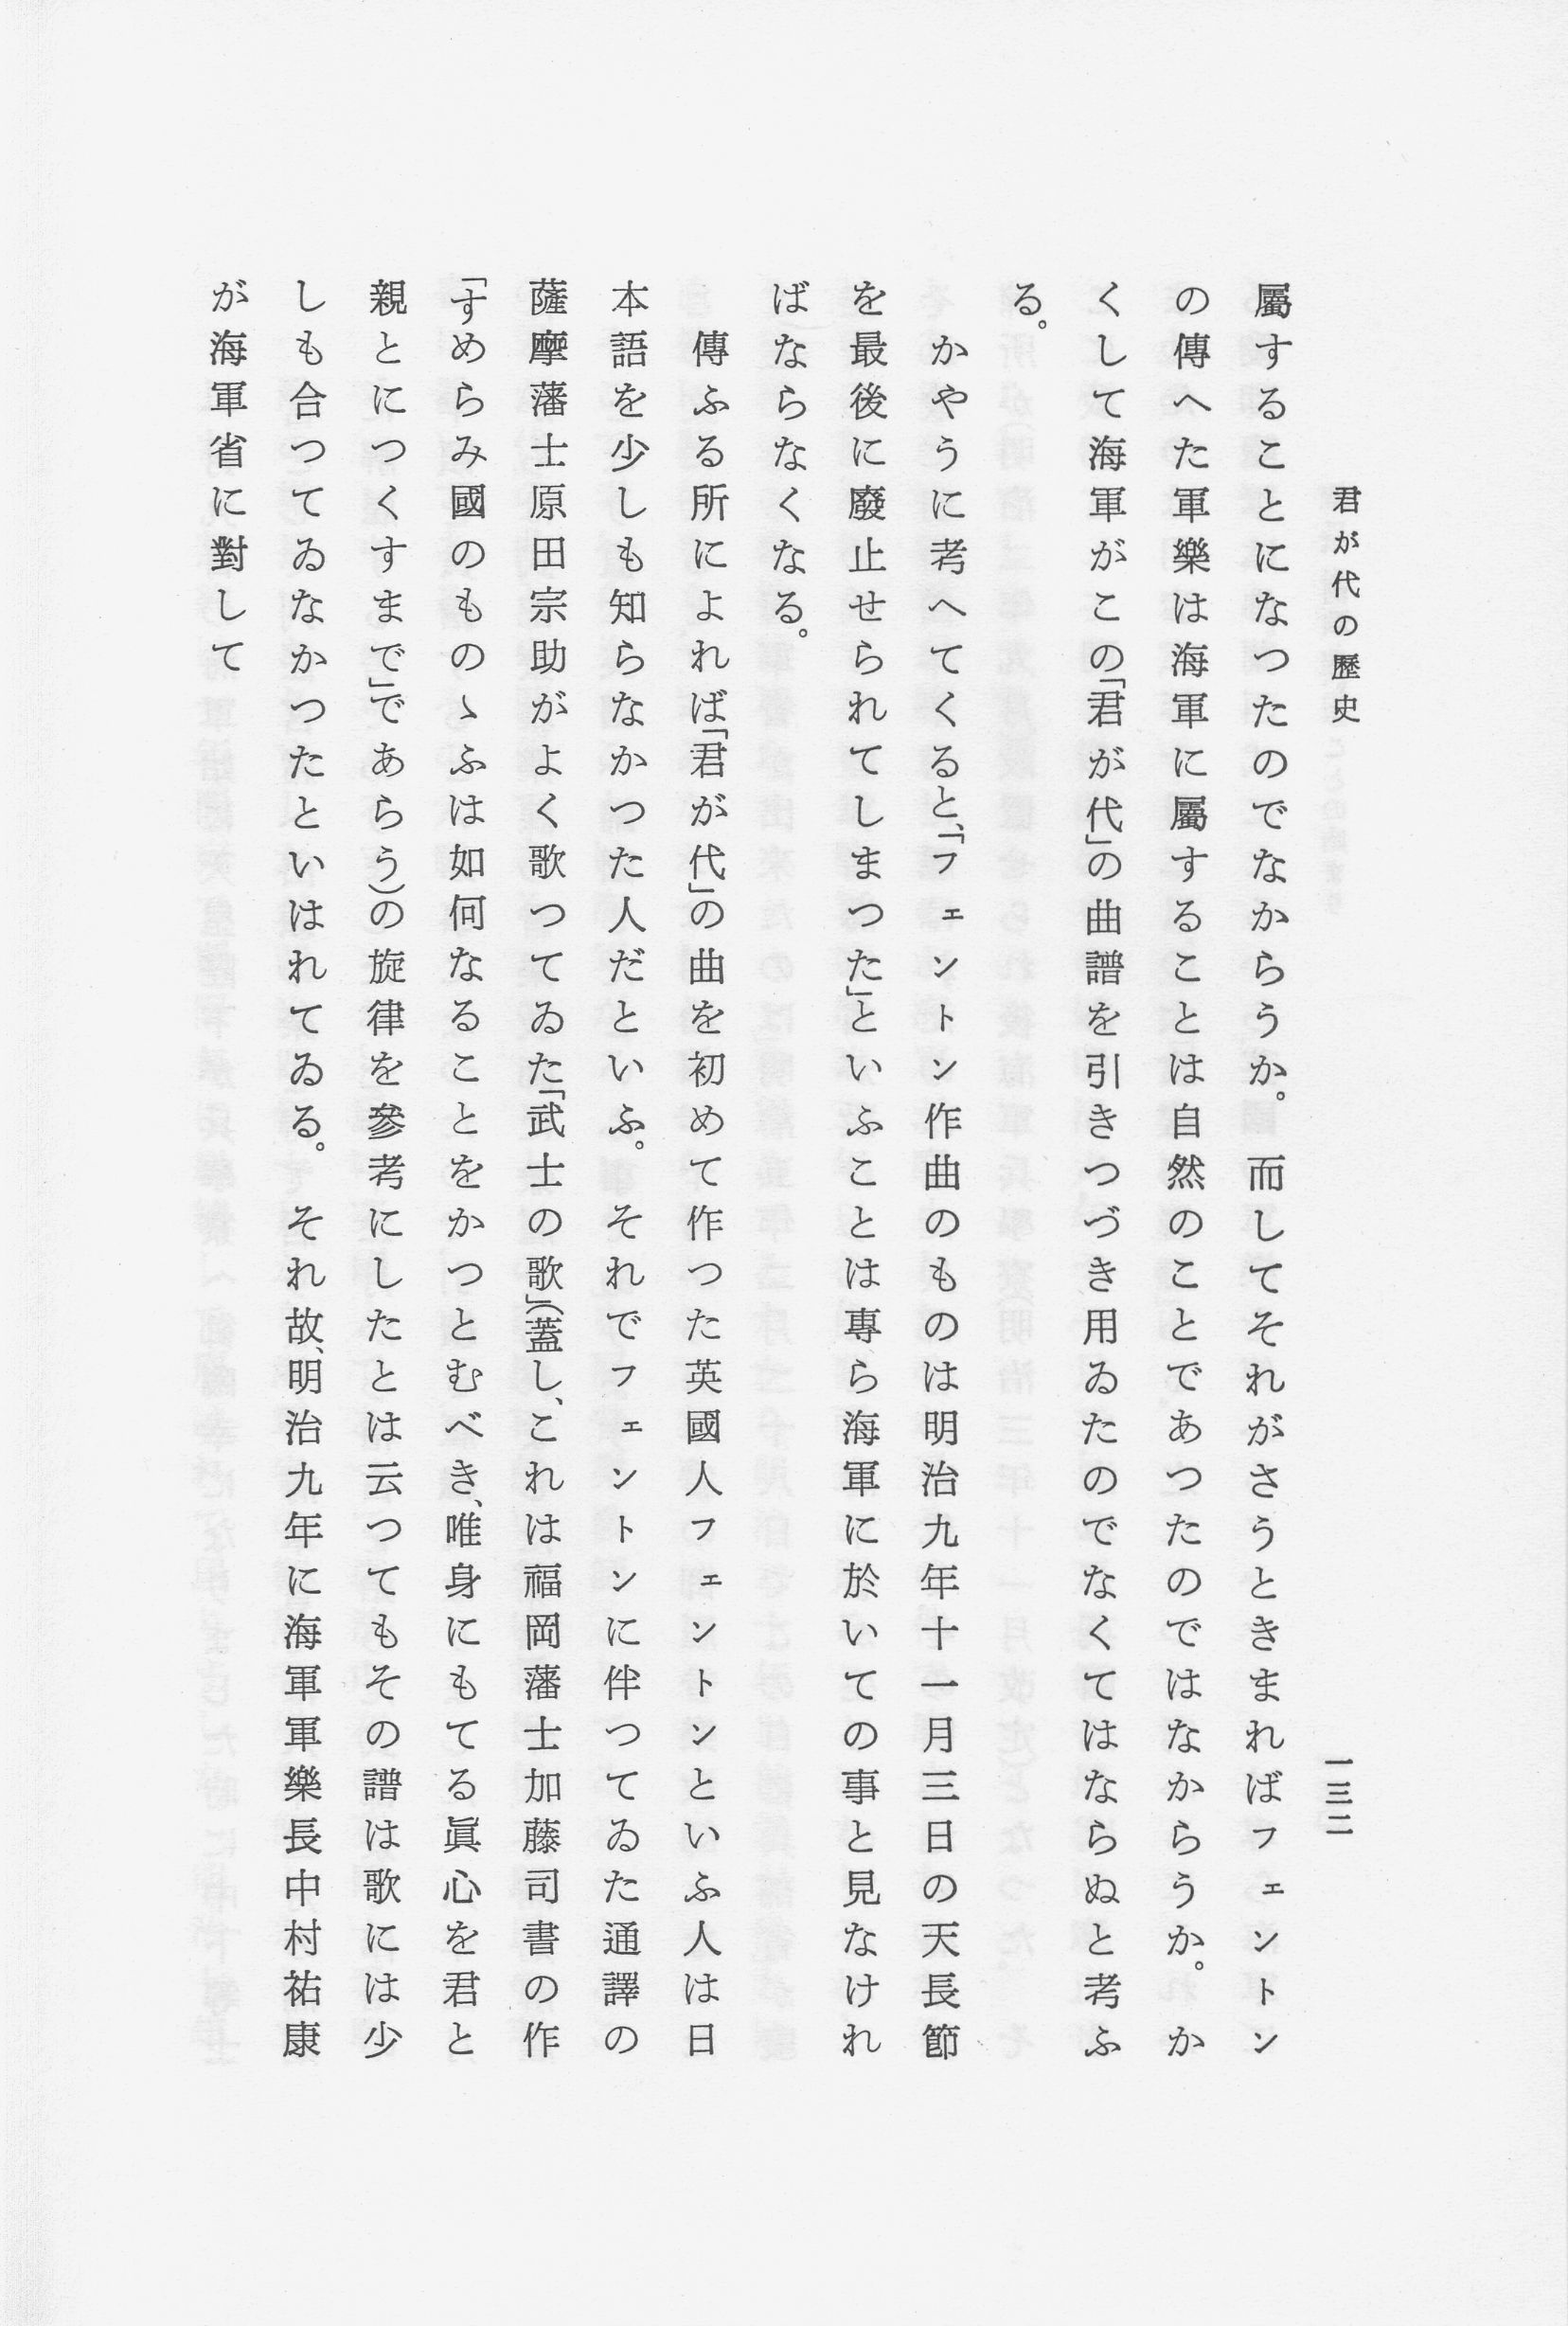 君が代の歷史
一三二
屬することになつたのでなからうか。而してそれがさうときまればフェントン
の傳へた軍樂は海軍に屬することは自然のことであつたのではなからうか。か
くして海軍がこの「君が代」の曲譜を引きつづき用ゐたのでなくてはならぬと考ふ
る。
かやうに考へてくると、「フェントン作曲のものは明治九年十一月三日の天長節
を最後に廢止せられてしまつた」といふことは專ら海軍に於いての事と見なけれ
ばならなくなる。
傳ふる所によれば「君が代」の曲を初めて作つた英國人フェントンといふ人は日
本語を少しも知らなかつた人だといふ。それでフェントンに伴つてゐた通譯の
薩摩藩士原田宗助がよく歌つてゐた「武士の歌」(蓋し、これは福岡藩士加藤司書の作
「すめらみ國のものゝふは如何なることをかつとむべき、唯身にもてる眞心を君と
親とにつくすまで」であらう)の旋律を參考にしたとは云つてもその譜は歌には少
しも合つてゐなかつたといはれてゐる。それ故、明治九年に海軍軍樂長中村祐康
が海軍省に對して